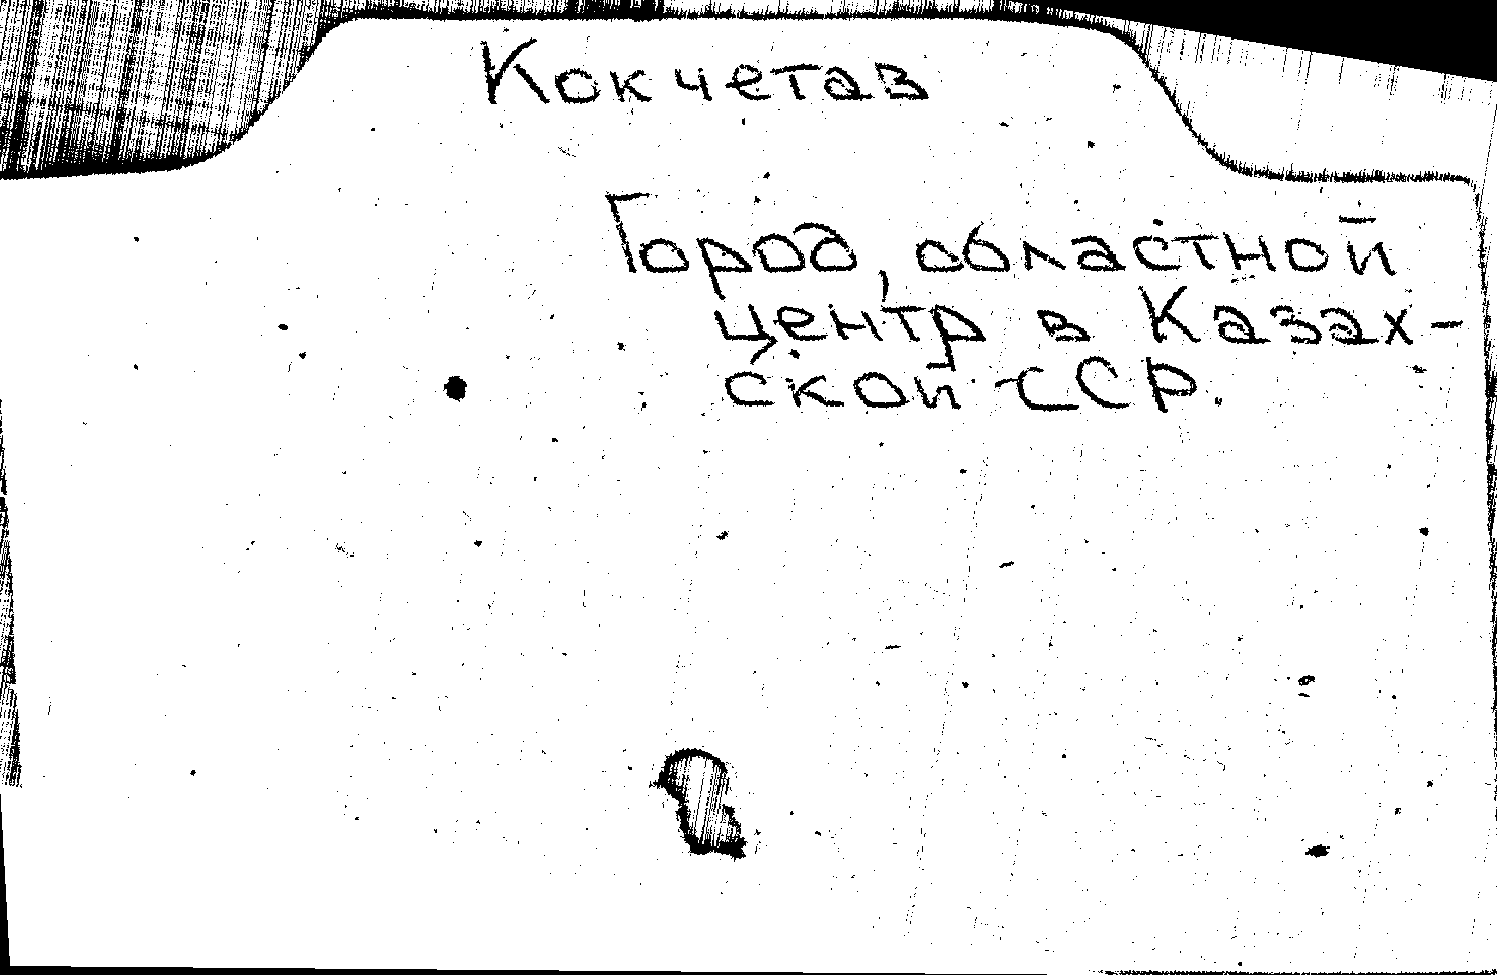 Кокчетав
Город, областной
центр в Казах-
ской ССР.